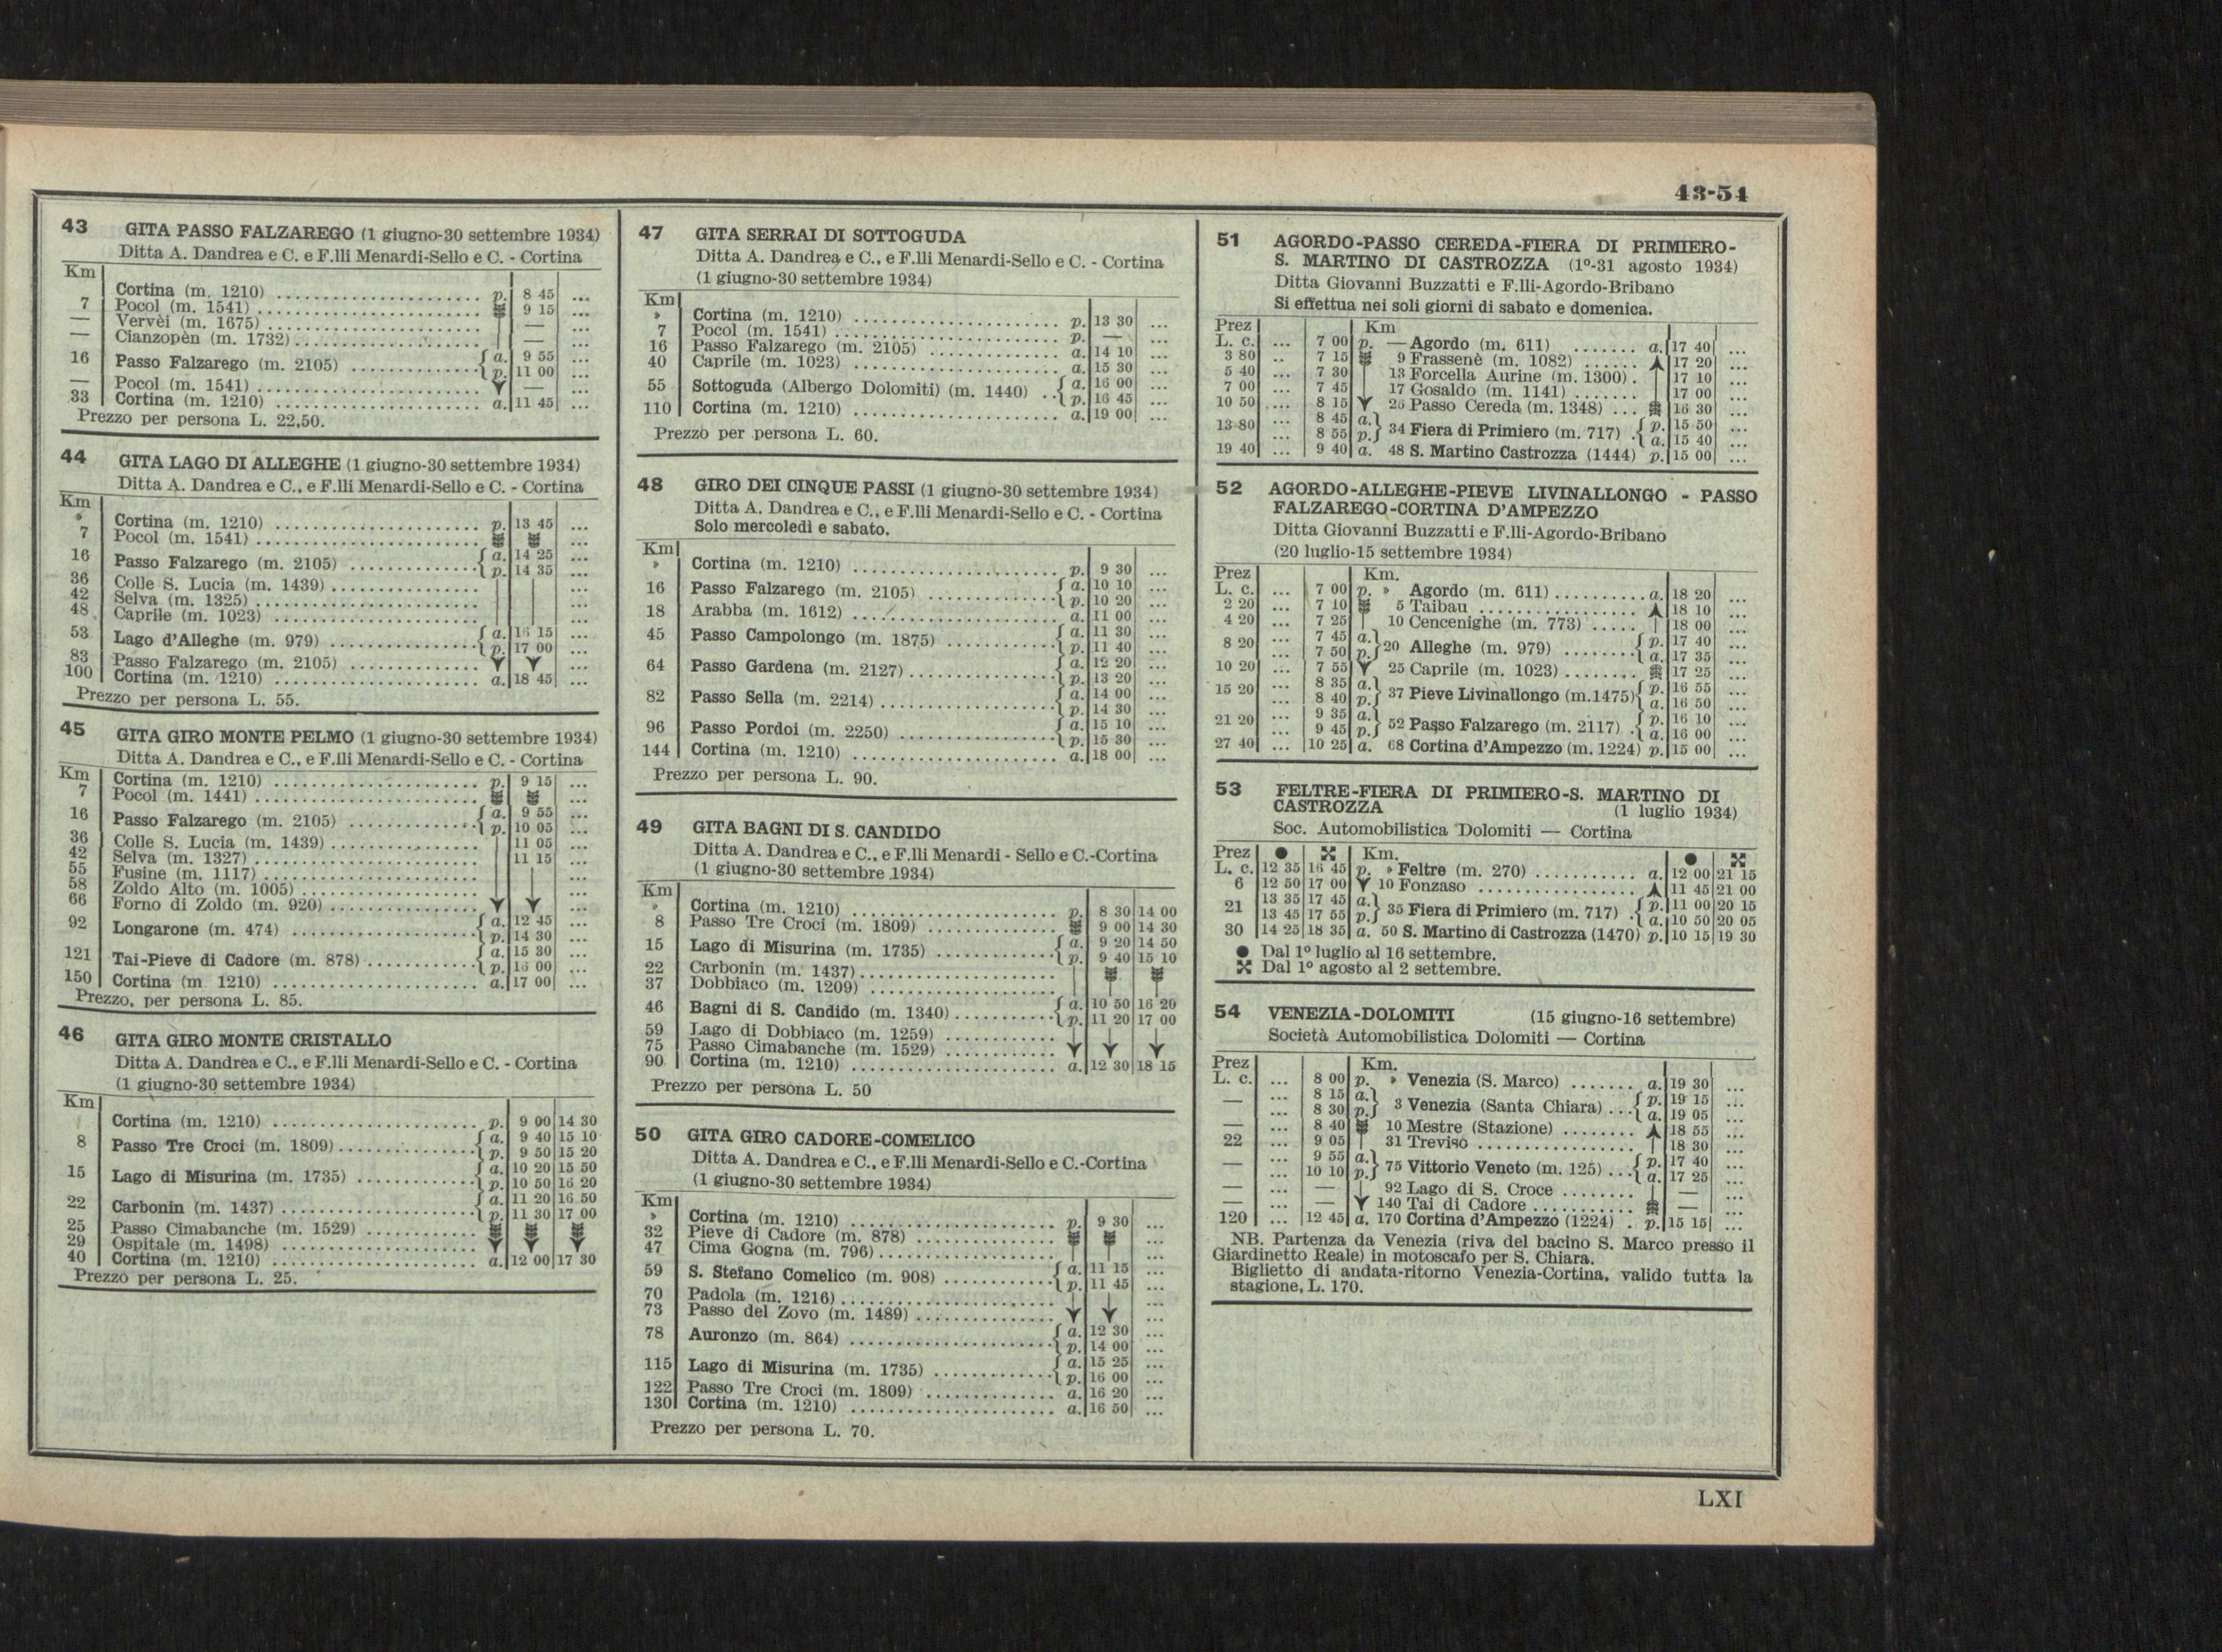 43-54
43 GITA PASSO FALZAREGO (1 giugno-30 settembre 1934)
Ditta A. Dandrea e C. e F.lli Menardi-Sello e C. - Cortina
Km
Cortina (m. 1210) ... p. 8 45 ...
7 Pocol (m. 1541) ... 9 15 ...
— Vervèi (m. 1675) ... — ...
— Cianzopèn (m. 1732) ... — ...
16 Passo Falzarego (m. 2105) ... a. 9 55 ...
p. 11 00 ...
— Pocol (m. 1541) ... — ...
33 Cortina (m. 1210) ... a. 11 45 ...
Prezzo per persona L. 22,50.
44 GITA LAGO DI ALLEGHE (1 giugno-30 settembre 1934)
Ditta A. Dandrea e C., e F.lli Menardi-Sello e C. - Cortina
Km
» Cortina (m. 1210) ... p. 13 45 ...
7 Pocol (m. 1541) ... ...
16 Passo Falzarego (m. 2105) ... a. 14 25 ...
p. 14 35 ...
36 Colle S. Lucia (m. 1439) ... ...
42 Selva (m. 1325) ... ...
48 Caprile (m. 1023) ... ...
53 Lago d'Alleghe (m. 979) ... a. 16 15 ...
p. 17 00 ...
83 Passo Falzarego (m. 2105) ... ...
100 Cortina (m. 1210) ... a. 18 45 ...
Prezzo per persona L. 55.
45 GITA GIRO MONTE PELMO (1 giugno-30 settembre 1934)
Ditta A. Dandrea e C., e F.lli Menardi-Sello e C. - Cortina
Km Cortina (m. 1210) ... p. 9 15 ...
7 Pocol (m. 1441) ... ...
16 Passo Falzarego (m. 2105) ... a. 9 55 ...
p. 10 05 ...
36 Colle S. Lucia (m. 1439) ... 11 05 ...
42 Selva (m. 1327) ... 11 15 ...
55 Fusine (m. 1117) ... ...
58 Zoldo Alto (m. 1005) ... ...
66 Forno di Zoldo (m. 920) ... ...
92 Longarone (m. 474) ... a. 12 45 ...
p. 14 30 ...
121 Tai-Pieve di Cadore (m. 878) ... a. 15 30 ...
p. 16 00 ...
150 Cortina (m 1210) ... a. 17 00 ...
Prezzo, per persona L. 85.
46 GITA GIRO MONTE CRISTALLO
Ditta A. Dandrea e C., e F.lli Menardi-Sello e C. - Cortina
(1 giugno-30 settembre 1934)
Km
Cortina (m. 1210) ... p. 9 00 14 30
8 Passo Tre Croci (m. 1809) ... a. 9 40 15 10
p. 9 50 15 20
15 Lago di Misurina (m. 1735) ... a. 10 20 15 50
p. 10 50 16 20
22 Carbonin (m. 1437) ... a. 11 20 16 50
p. 11 30 17 00
25 Passo Cimabanche (m. 1529) ...
29 Ospitale (m. 1498) ...
40 Cortina (m. 1210) ... a. 12 00 17 30
Prezzo per persona L. 25.
47 GITA SERRAI DI SOTTOGUDA
Ditta A. Dandrea e C., e F.lli Menardi-Sello e C. - Cortina
(1 giugno-30 settembre 1934)
Km
» Cortina (m. 1210) ... p. 13 30 ...
7 Pocol (m. 1541) ... p. — ...
16 Passo Falzarego (m. 2105) ... a. 14 10 ...
40 Caprile (m. 1023) ... a. 15 30 ...
55 Sottoguda (Albergo Dolomiti) (m. 1440) .. a. 16 00 ...
p. 16 45 ...
110 Cortina (m. 1210) ... a. 19 00 ...
Prezzo per persona L. 60.
48 GIRO DEI CINQUE PASSI (1 giugno-30 settembre 1934)
Ditta A. Dandrea e C., e F.lli Menardi-Sello e C. - Cortina
Solo mercoledì e sabato.
Km
» Cortina (m. 1210) ... p. 9 30 ...
16 Passo Falzarego (m. 2105) ... a. 10 10 ...
p. 10 20 ...
18 Arabba (m. 1612) ... a. 11 00 ...
45 Passo Campolongo (m. 1875) ... a. 11 30 ...
p. 11 40 ...
64 Passo Gardena (m. 2127) ... a. 12 20 ...
p. 13 20 ...
82 Passo Sella (m. 2214) ... a. 14 00 ...
p. 14 30 ...
96 Passo Pordoi (m. 2250) ... a. 15 10 ...
p. 15 30 ...
144 Cortina (m. 1210) ... a. 18 00 ...
Prezzo per persona L. 90.
49 GITA BAGNI DI S. CANDIDO
Ditta A. Dandrea e C., e F.lli Menardi - Sello e C.-Cortina
(1 giugno-30 settembre 1934)
Km
» Cortina (m. 1210) ... p. 8 30 14 00
8 Passo Tre Croci (m. 1809) ... 9 00 14 30
15 Lago di Misurina (m. 1735) ... a. 9 20 14 50
p. 9 40 15 10
22 Carbonin (m. 1437) ...
37 Dobbiaco (m. 1209) ...
46 Bagni di S. Candido (m. 1340) ... a. 10 50 16 20
p. 11 20 17 00
59 Lago di Dobbiaco (m. 1259) ...
75 Passo Cimabanche (m. 1529) ...
90 Cortina (m. 1210) ... a. 12 30 18 15
Prezzo per persona L. 50
50 GITA GIRO CADORE-COMELICO
Ditta A. Dandrea e C., e F.lli Menardi-Sello e C.-Cortina
(1 giugno-30 settembre 1934)
Km
» Cortina (m. 1210) ... p. 9 30 ...
32 Pieve di Cadore (m. 878) ... ...
47 Cima Gogna (m. 796) ... ...
59 S. Stefano Comelico (m. 908) ... a. 11 15 ...
p. 11 45 ...
70 Padola (m. 1216) ... ...
73 Passo del Zovo (m. 1489) ... ...
78 Auronzo (m. 864) ... a. 12 30 ...
p. 14 00 ...
115 Lago di Misurina (m. 1735) ... a. 15 25 ...
p. 16 00 ...
122 Passo Tre Croci (m. 1809) ... a. 16 20 ...
130 Cortina (m. 1210) ... a. 16 50 ...
Prezzo per persona L. 70.
51 AGORDO-PASSO CEREDA-FIERA DI PRIMIERO-
S. MARTINO DI CASTROZZA (1º-31 agosto 1934)
Ditta Giovanni Buzzatti e F.lli-Agordo-Bribano
Si effettua nei soli giorni di sabato e domenica.
Prez Km
L. c. ... 7 00 p. — Agordo (m. 611) ... a. 17 40 ...
3 80 .. 7 15 9 Frassenè (m. 1082) ... 17 20 ...
5 40 ... 7 30 13 Forcella Aurine (m. 1300) . 17 10 ...
7 00 ... 7 45 17 Gosaldo (m. 1141) ... 17 00 ...
10 50 ... 8 15 26 Passo Cereda (m. 1348) ... 16 30 ...
13 80 ... 8 45 a. 34 Fiera di Primiero (m. 717) . p. 15 50 ...
... 8 55 p. a. 15 40 ...
19 40 ... 9 40 a. 48 S. Martino Castrozza (1444) p. 15 00 ...
52 AGORDO-ALLEGHE-PIEVE LIVINALLONGO - PASSO
FALZAREGO-CORTINA D'AMPEZZO
Ditta Giovanni Buzzatti e F.lli-Agordo-Bribano
(20 luglio-15 settembre 1934)
Prez Km.
L. c. ... 7 00 p. » Agordo (m. 611) ... a. 18 20 ...
2 20 ... 7 10 5 Taibau ... 18 10 ...
4 20 ... 7 25 10 Cencenighe (m. 773) ... 18 00 ...
8 20 ... 7 45 a. 20 Alleghe (m. 979) ... p. 17 40 ...
... 7 50 p. a. 17 35 ...
10 20 ... 7 55 25 Caprile (m. 1023) ... 17 25 ...
15 20 ... 8 35 a. 37 Pieve Livinallongo (m.1475) p. 16 55 ...
... 8 40 p. a. 16 50 ...
21 20 ... 9 35 a. 52 Passo Falzarego (m. 2117) . p. 16 10 ...
... 9 45 p. a. 16 00 ...
27 40 ... 10 25 a. 68 Cortina d'Ampezzo (m. 1224) p. 15 00 ...
53 FELTRE-FIERA DI PRIMIERO-S. MARTINO DI
CASTROZZA (1 luglio 1934)
Soc. Automobilistica Dolomiti — Cortina
Prez ● ✠ Km. ● ✠
L. c. 12 35 16 45 p. » Feltre (m. 270) ... a. 12 00 21 15
6 12 50 17 00 10 Fonzaso ... 11 45 21 00
21 13 35 17 45 a. 35 Fiera di Primiero (m. 717) . p. 11 00 20 15
13 45 17 55 p. a. 10 50 20 05
30 14 25 18 35 a. 50 S. Martino di Castrozza (1470) p. 10 15 19 30
● Dal 1º luglio al 16 settembre.
✠ Dal 1º agosto al 2 settembre.
54 VENEZIA-DOLOMITI (15 giugno-16 settembre)
Società Automobilistica Dolomiti — Cortina
Prez Km.
L. c. ... 8 00 p. » Venezia (S. Marco) ... a. 19 30 ...
— ... 8 15 a. 3 Venezia (Santa Chiara) ... p. 19 15 ...
... 8 30 p. a. 19 05 ...
— ... 8 40 10 Mestre (Stazione) ... 18 55 ...
22 ... 9 05 31 Treviso ... 18 30 ...
— ... 9 55 a. 75 Vittorio Veneto (m. 125) ... p. 17 40 ...
... 10 10 p. a. 17 25 ...
— ... — 92 Lago di S. Croce ... — ...
— ... — 140 Tai di Cadore ... — ...
120 ... 12 45 a. 170 Cortina d'Ampezzo (1224) . p. 15 15 ...
NB. Partenza da Venezia (riva del bacino S. Marco presso il
Giardinetto Reale) in motoscafo per S. Chiara.
Biglietto di andata-ritorno Venezia-Cortina, valido tutta la
stagione, L. 170.
LXI